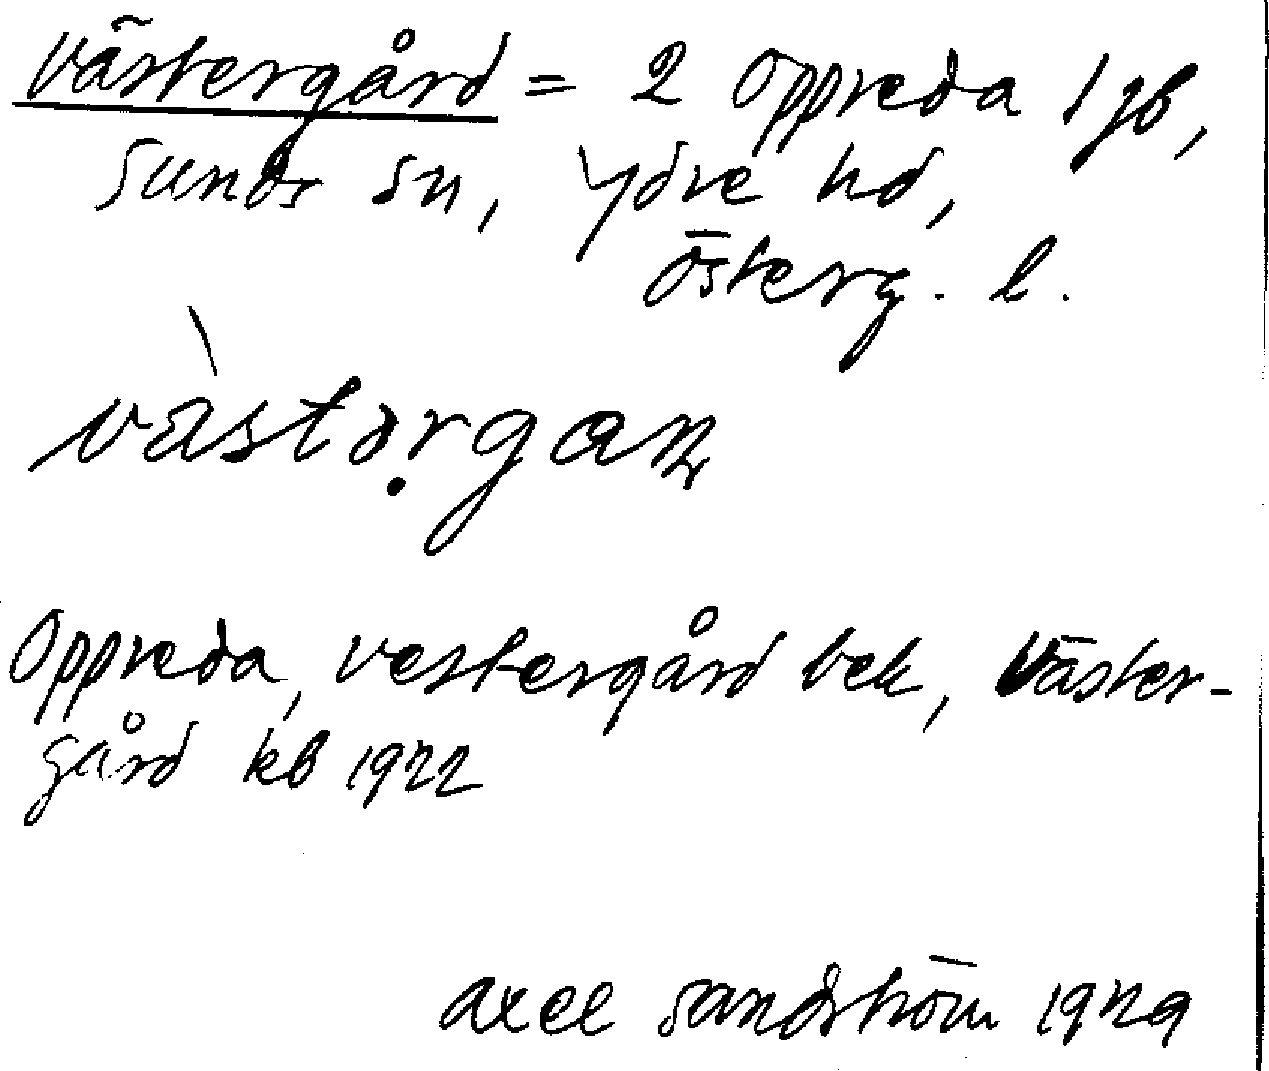 Västergård = 2 Oppreda 1 gb,
Sunds sn, Ydre hd,
Österg. l.
vàstə̣rgaɳ
Oppreda, Vestergård bek, Väster-
gård kb 1922
Axel Sandström 1929